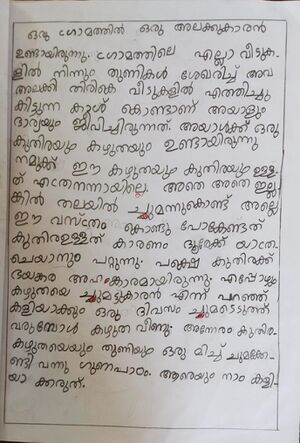 ഒരു ഗ്രാമത്തിൽ ഒരു അലക്കുകാരൻ
ഉണ്ടായിരുന്നു. ഗ്രാമത്തിലെ എല്ലാ വീടുക-
ളിൽ നിന്നും തുണികൾ ശേഖരിച്ച് അവ
അലക്കി തിരികെ വീടുകളിൽ എത്തിച്ചു
കിട്ടുന്ന കാശ് കൊണ്ടാണ് അയാളും
ഭാര്യയും ജീവിച്ചിരുന്നത്. അയാൾക്ക് ഒരു
കുതിരയും കഴുതയും ഉണ്ടായിരുന്നു
നമുക്ക് ഈ കഴുതയും കുതിരയും ഉള്ള-
ത് എന്തിനന്നായില്ലെ. അതെ അതെ ഇല്ല
ങ്കിൽ തലയിൽ ചുമന്നുകൊണ്ട് അല്ലെ
ഈ വസ്ത്രം കൊണ്ടു പോകേണ്ടത്
കുതിരഉള്ളത് കാരണം ദൂരേക്ക് യാത്ര-
ചെയാനും പറ്റുന്നു. പക്ഷെ കുതിരക്ക്
ഭയങ്കര അഹംങ്കാരമായിരുന്നു. എപ്പോഴും
കഴുതയെ ചുമടുകാരൻ എന്ന് പറഞ്ഞ്
കളിയാക്കും ഒരു ദിവസം ചുമടെടുത്ത്
വരുമ്പോൾ കഴുത വീണു. അന്നേരം കുതിര-
കഴുതയെയും തുണിയും ഒരു മിച്ച് ചുമക്കേ-
ണ്ടി വന്നു ഗുണപാഠം. ആരെയും നാം കളി-
യാ ക്കരുത്.